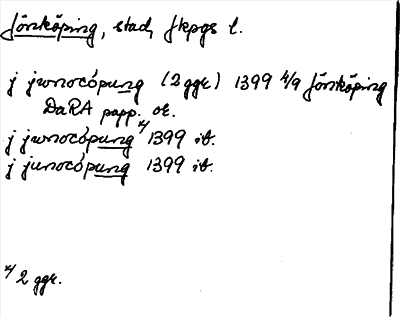 Jönköping, stad, Jkpgs l.
j jwnocópung (2 ggr) 1399 4/9 Jönköping
DaRA papp. or.
j jwnocópung x/ 1399 ib.
j junocópung 1399 ib.
x/ 2 ggr.